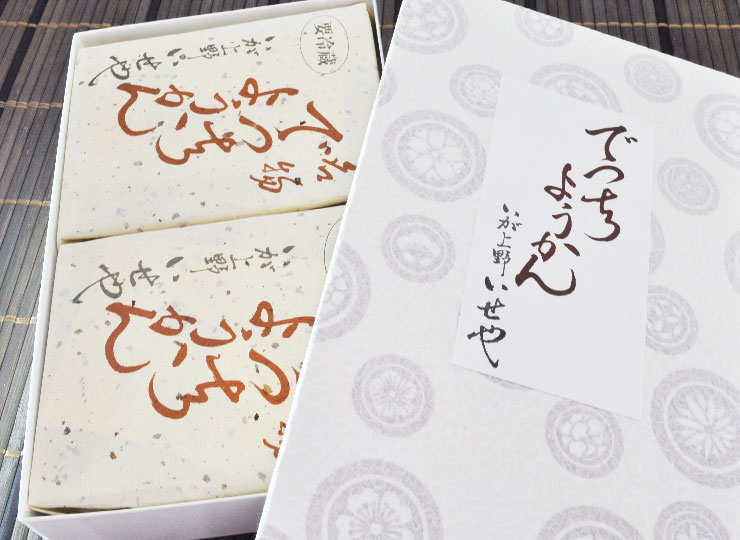 要冷蔵
名物
でっちようかん
いが上野 いせや
名物
でっちようかん
いが上野 いせや
でっち
ようかん
いが上野 いせや